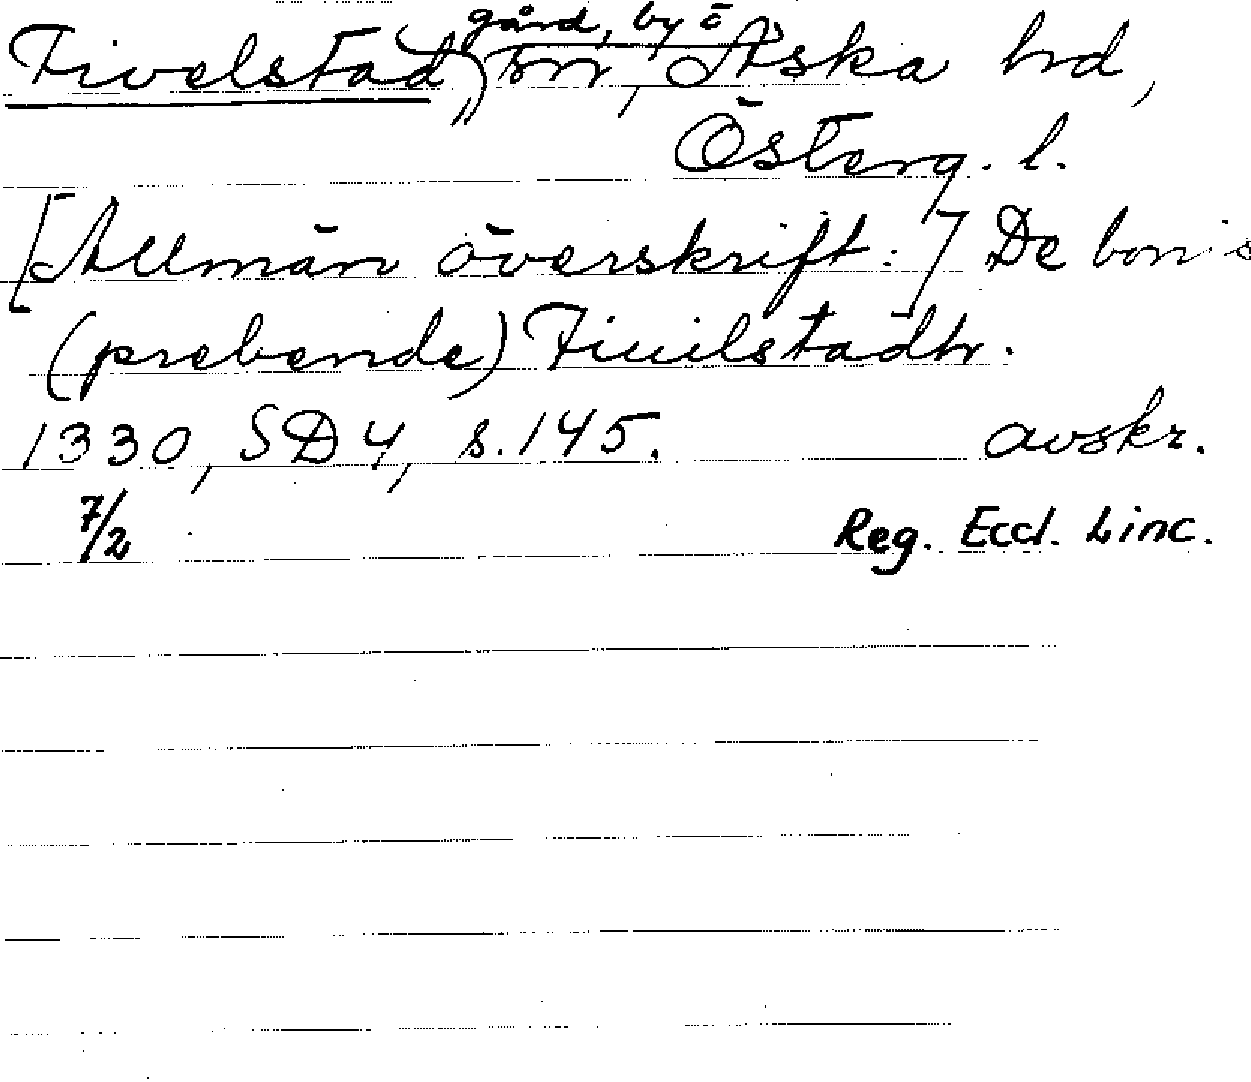 gård, by o
Fivelstad, sn, Aska hd,
Österg. l.
[Allmän överskrift:] De bonis
(prebende) Fiuilstadhr.
1330, SD 4, s. 145. avskr.
7/2 Reg. Eccl. Linc.